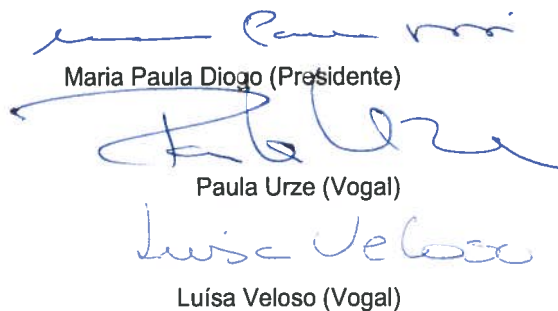 Maria Paula Diogo (Presidente)
Paula Urze
Paula Urze (Vogal)
Luisa Veloso
Luísa Veloso (Vogal)